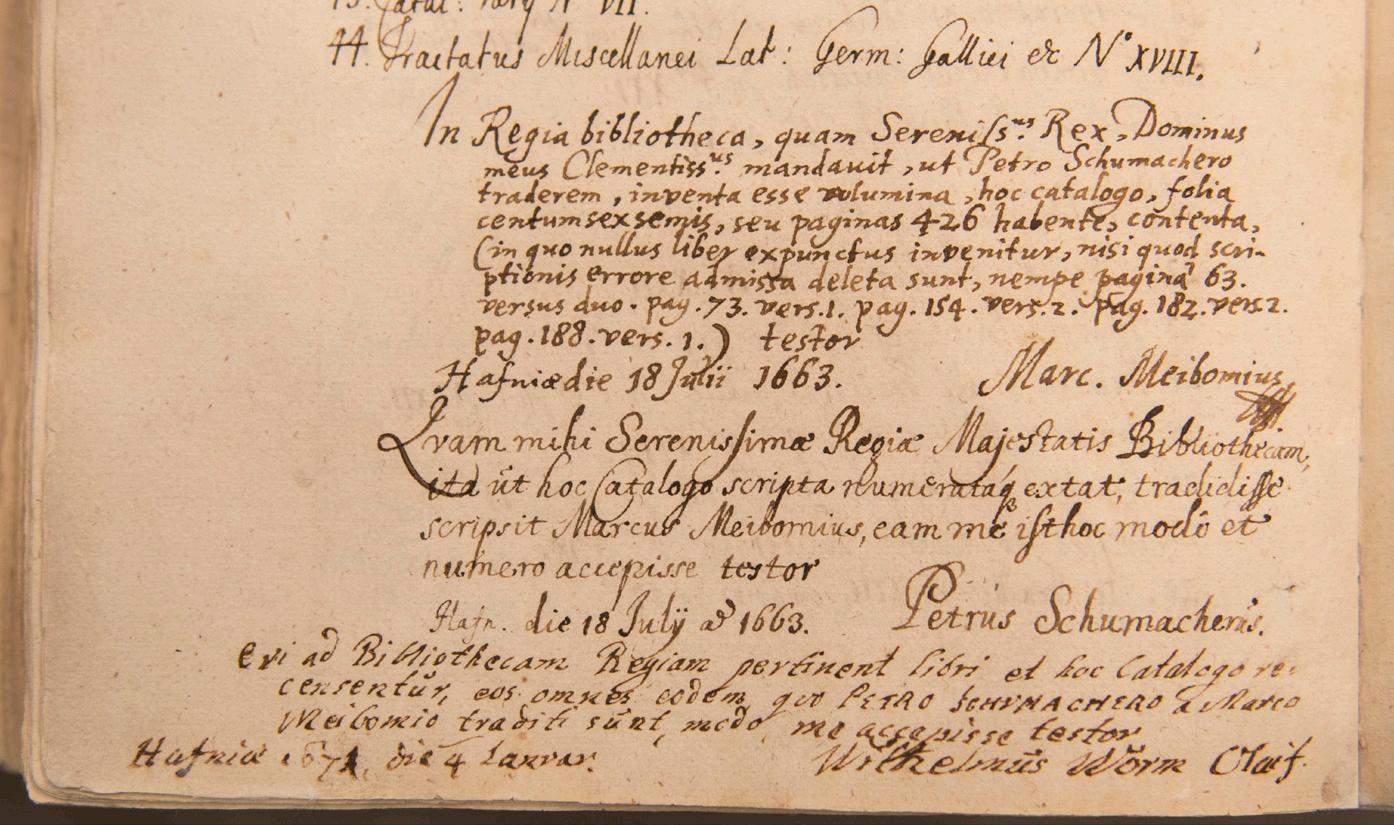 Catal: N VII.
44. Tractatus Miscellanei Lat: Germ: Gallici &c N° XVIII.
In Regia bibliotheca, quam Sereniss.us Rex, Dominus
meus Clementiss.us mandavit, ut Petro Schumachero
traderem, inventa esse volumina, hoc catalogo, folia
centum sex semis, seu paginas 426 habente, contenta,
(in quo nullus liber expunctus invenitur, nisi quod scri-
ptionis errore admissa deleta sunt, nempe pagina 63.
versus duo. pag. 73. vers. 1. pag. 154. vers. 2. pag. 182. vers. 2.
pag. 188. vers. 1.) testor
Hafniæ die 18 Julii 1663. Marc. Meibomius
Qvam mihi Serenissimæ Regiæ Majestatis Bibliothecam,
ita ut hoc Catalogo scripta numerataq extat, tradidisse
scripsit Marcus Meibomius, eam me isthoc modo et
numero accepisse testor
Hafn. die 18 Julÿ aº 1663. Petrus Schumacherus.
Qvi ad Bibliothecam Regiam pertinent libri et hoc Catalogo re-
censentur, eos omnes eodem, qvo PETRO SCHUMACHERO a Marco
Meibomio traditi sunt, modo, me accepisse testor
Hafniæ 1671, die 4 Januar. Wilhelmus Worm Olai f.